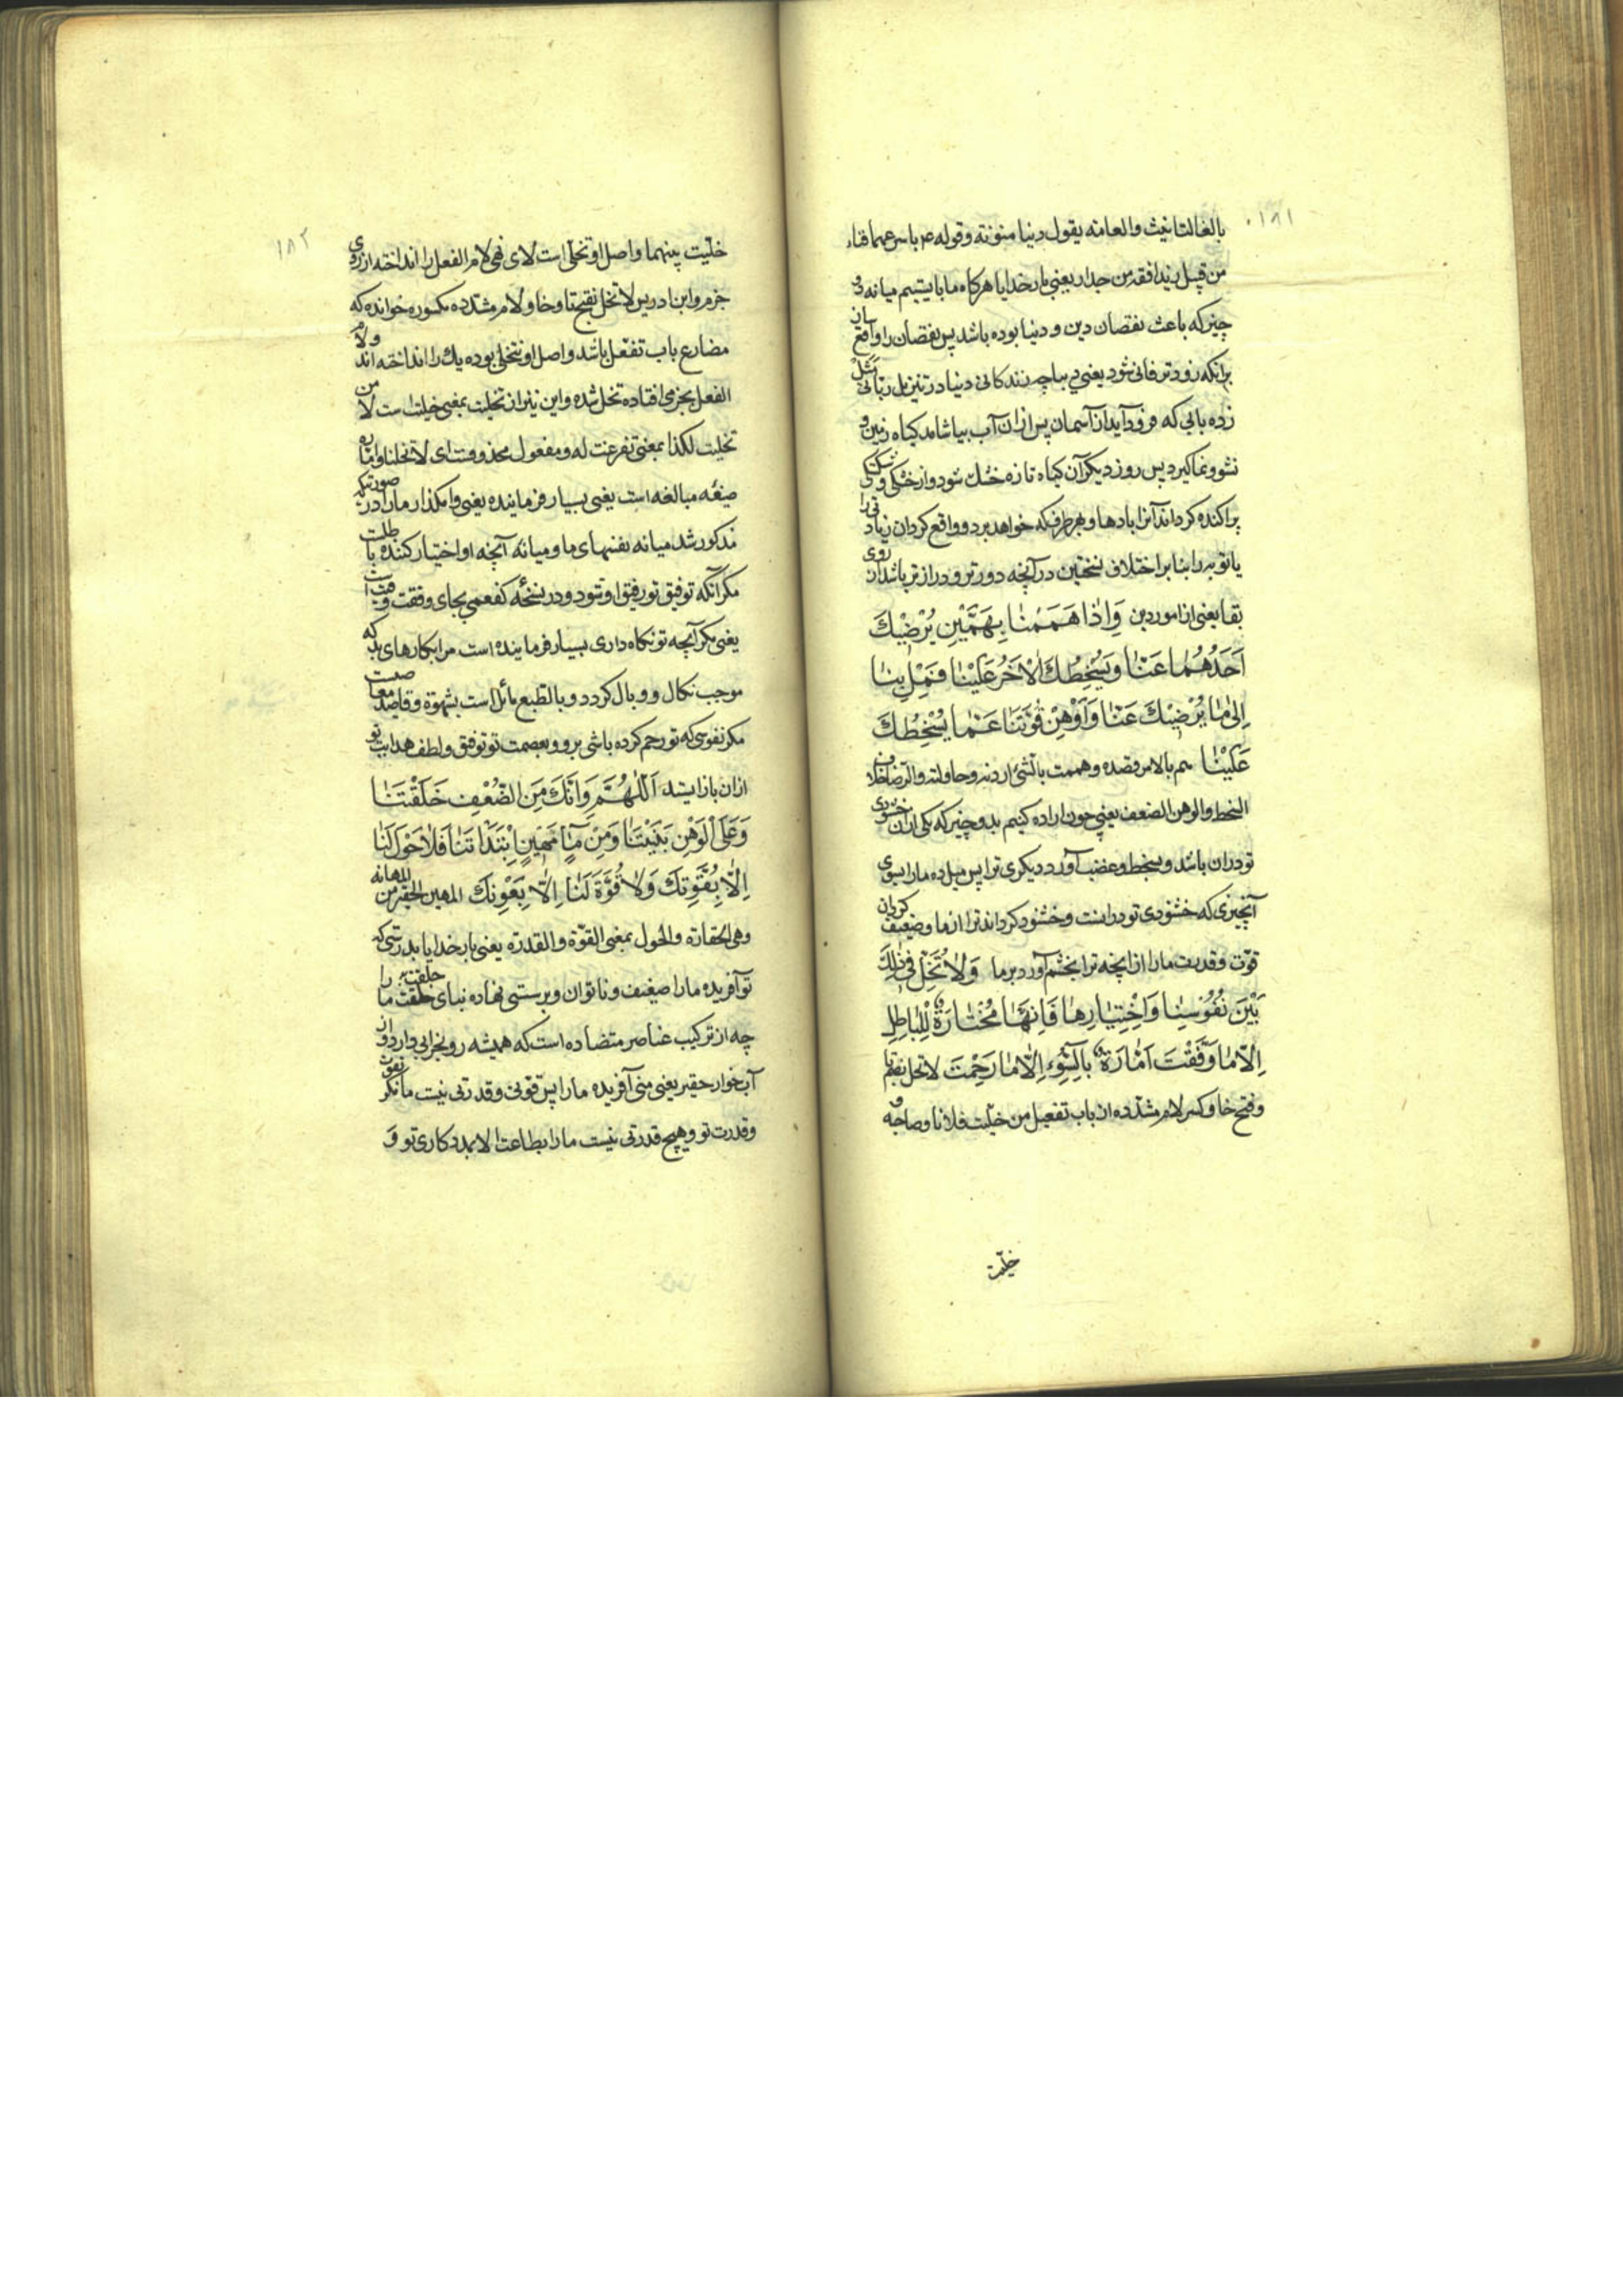 ۱۸۱
بالف التانیث والعامته یقول دنیا منونة وقوله باسرعهما فناء
من قبیل زید افقد من جدار یعنی بار خدایا هرگاه ما بایستیم میانه دو
چیز که باعث نقصان دین و دنیا بوده باشد پس نقصان را واقع سان
برانکه زودتر فانی شود یعنی دنیا چه زندکانی دنیا در تنزیل ربانی مثل
زده بابی که فرود آید از آسمان پس ازان آب بیاشامد کیاه زمین و
نشو ونما کیرد پس روز دیکر آن کیاه تازه خشک شود واز خشکی و شکستکی
پراکنده کرداند آنرا بادها و بهر طرف که خواهد برد و واقع کردان زیادتی را
یا توبه را بنا بر اختلاف نسختین در آنچه دورتر و درازتر باشد از روی
بقا یعنی از امور دین وَاِذٰا هَمَمْنٰا بِهَمَّیْنِ یُرْضِیْكَ
اَحَدُهُمٰا عَنّٰا وَیُسْخِطُكَ الْاٰخَرُ عَلَیْنٰا فَمِلْ بِنٰا
اِلیٰ مٰا یُرْضِیْكَ عَنّٰا وَاَوْهِنْ قُوَّتَنٰا عَمّٰا یُسْخِطُكَ
عَلَیْنٰا هم بالامر قصده وهممت بالشئ اردته وحاولته والرضا خلاف
السخط والوهن الضعف یعنی چون اراده کنیم بدو چیز که یکی ازان خشنودی
تو دران باشد و بسخط و غضب آورد دیکری ترا پس میل ده ما را بسوی
آنچیزی که خشنودی تو در انست و خشنود کرداند ترا از ما وضعیف کردان
قوّت و قدرت ما را از انچه ترا بخشم آورد بر ما وَلاٰ تُخَلِّ فی ذٰلِكَ
بَیْنَ نُفُوْسِنٰا وَاخْتِیٰارِهٰا فَاِنَّهٰا مُخْتٰارَةٌ لِلْبٰاطِلِ
اِلّٰا مٰا وَفَّقْتَ اَمّٰارَةٌ بِالسُّوْءِ اِلّٰا مٰا رَحِمْتَ لا تخل بضم تا
وفتح خا وکسر لام مشدّده از باب تفعیل من خلّیت فلانا وصاحبه و
خلّیت
۱۸۲
خلّیت بینهما واصل او تخلّی است لای نهی لام الفعل را انداخته از روی
جزم وابن ادریس لا تخل بفتح تا وخا ولام مشدّده مکسوره خوانده که
مضارع باب تفعّل باشد واصل او تتخلی بوده یك را انداخته اند ولام
الفعل بجزمی افتاده تخل شده واین نیز از تخلیت بمعنی خلیت است لا من
تخلیت لکذا بمعنی تفرغت له ومفعول محذوفست ای لا تخلنا وامّاره
صیغه مبالغه است یعنی بسیار فرماینده یعنی وامکذار ما را در صورتیکه
مذکور شد میانه نفسهای ما و میانه آنچه او اختیار کننده باطلست
مکر آنکه توفیق تو رفیق او شود و در نسخه کفعمی بجای وفقت وقیت است
یعنی مکر آنچه تو نکاه داری بسیار فرماینده است مر ابکارهای بد که
موجب نکال و وبال کردد و بالطبع مائل است بشهوة وقاصد معاصیت
مکر نفوسی که تو رحم کرده باشی برو و بعصمت تو توفیق ولطف هدایت تو
ازان باز ایستد اَللّٰهُمَّ وَاِنَّكَ مِنَ الضُّعْفِ خَلَقْتَنٰا
وَعَلَی الْوَهْنِ بَنَیْتَنٰا وَمِنْ مٰاءٍ مَهِیْنٍ اِبْتَدَاْتَنٰا فَلاٰ حَوْلَ لَنٰا
اِلّٰا بِقُوَّتِكَ وَلاٰ قُوَّةَ لَنٰا اِلّٰا بِعَوْنِكَ المهین الحقیر من المهانه
وهی الحقارة والحول بمعنی القوّة والقدرة یعنی بار خدایا بدرستی که
تو آفریده ما را ضعیف و ناتوان و برسستی نهاده بنای خلقت ما را
چه از ترکیب عناصر متضاده است که همیشه رو بخرابی دارد و از
آب خوار حقیر یعنی منی آفریده ما را پس قوّتی و قدرتی نیست ما مکر بقوّت
و قدرت تو و هیچ قدرتی نیست ما را بطاعت الا بمددکاری تو و